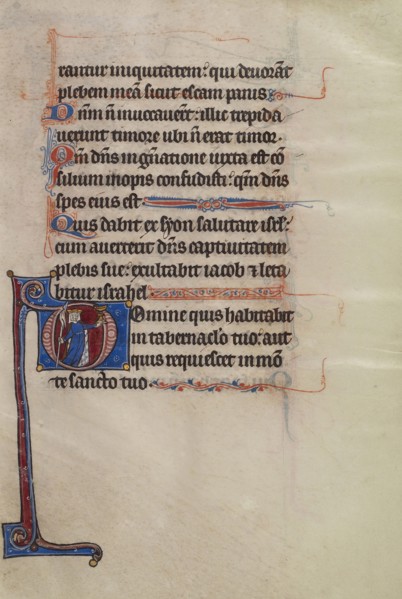 rantur iniquitatem: qui devorāt
plebem meā sicut escam panis
Dnm n invocavert: illic trepida
verunt timore ubi n erat timor.
Qm dns in gnatione iusta est cō
silium inopis confudisti: qm dns
spes eius est
Quis dabit ex syon salutare isrl:
cum averterit dns captivitatem
plebis sue: exultabit iacob & leta
bitur israhel.
Domine quis habitabit
in tabernaclo tuo: aut
quis requiescet in mō
te sancto tuo.